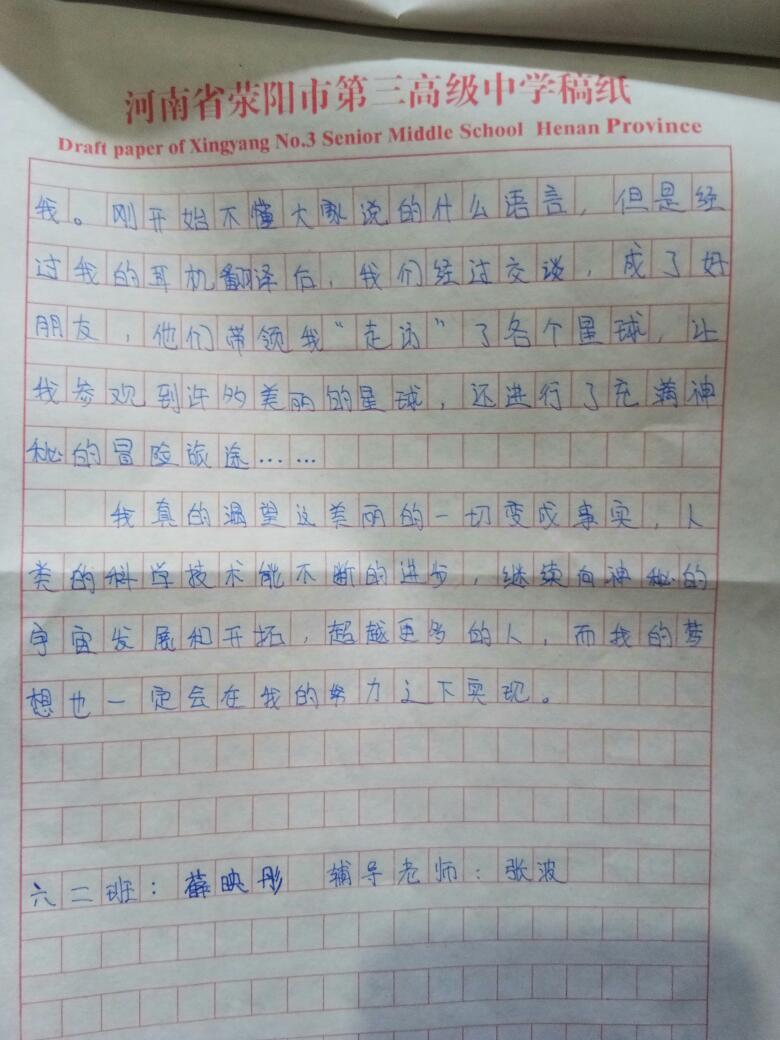 河南省荥阳市第三高级中学稿纸
Draft paper of Xingyang No.3 Senior Middle School Henan Province
我。刚开始不懂大家说的什么语言，但是经
过我的耳机翻译后，我们经过交谈，成了好
朋友，他们带领我“走访”了各个星球，让
我参观到许多美丽的星球，还进行了充满神
秘的冒险旅途……
我真的渴望这美丽的一切变成事实，人
类的科学技术能不断的进步，继续向神秘的
宇宙发展和开拓，超越更多的人，而我的梦
想也一定会在我的努力之下实现。
六二班：薛映彤 辅导老师：张波